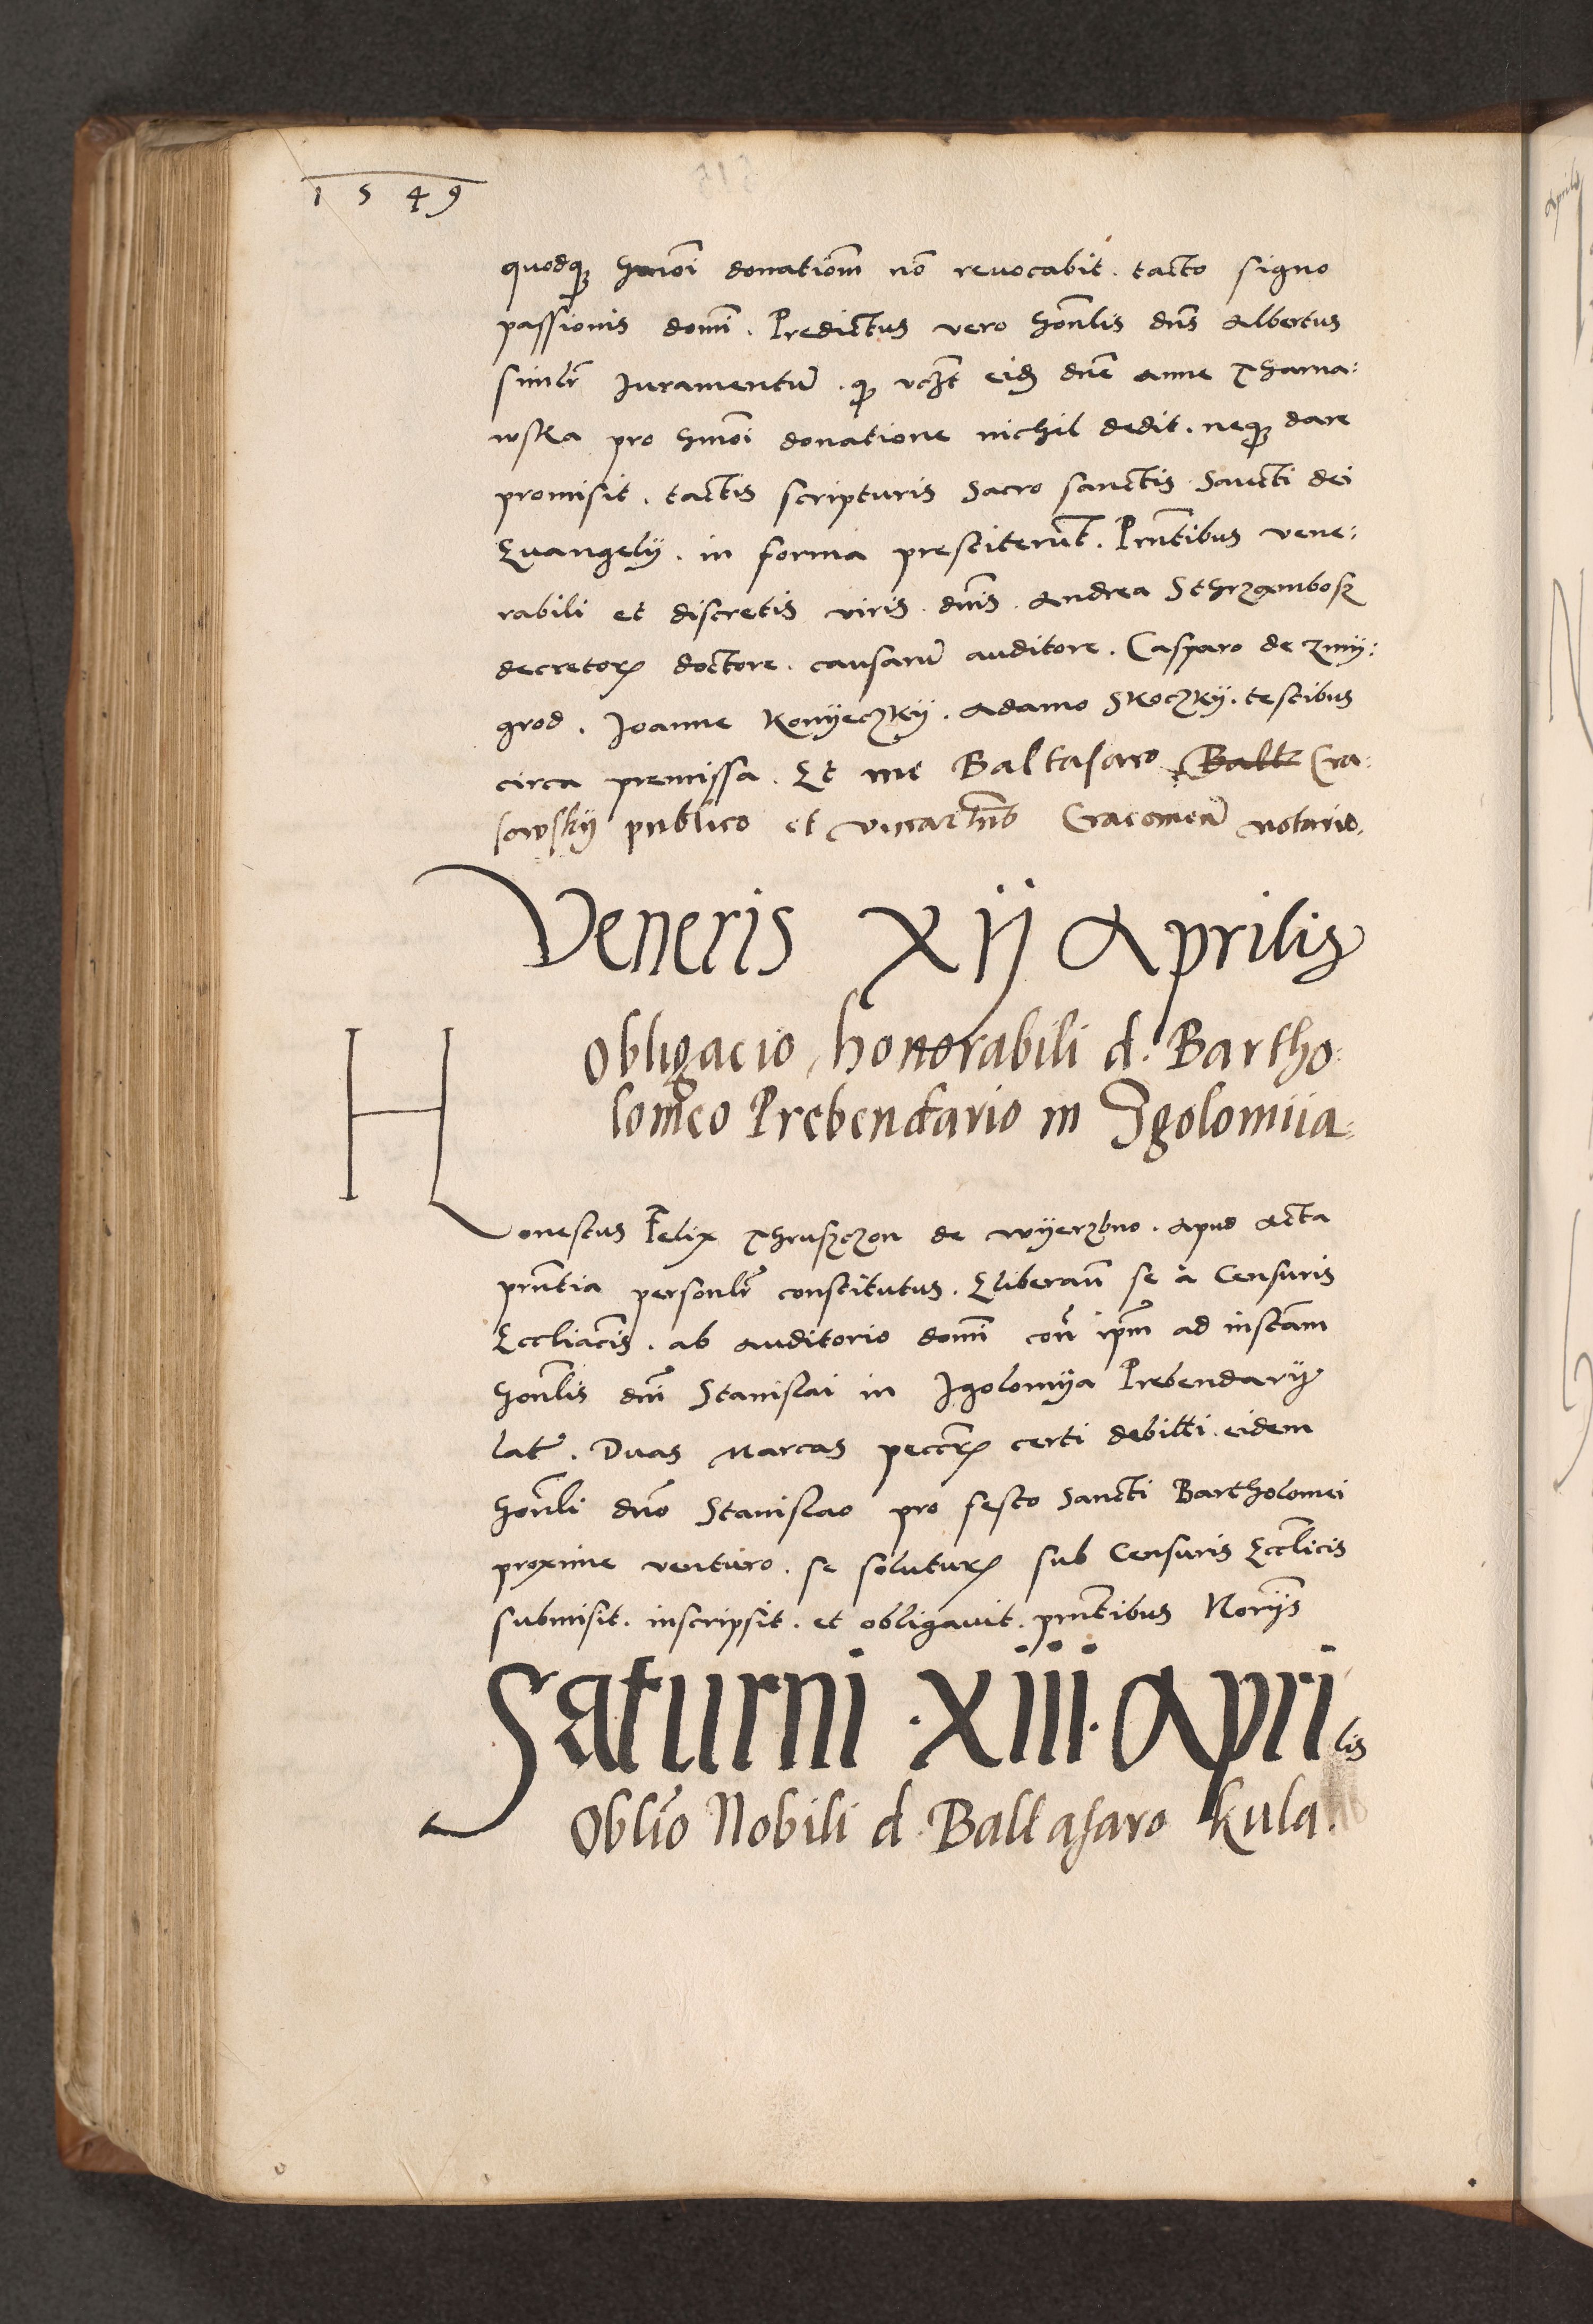 1549
quodq₃ hmōi donatiōm nō revocabit . tacto signo
passionis domī . Predictus vero honlis dns Albertus
similr Juramentū . q₃ eid dne Anne Tharna:
wska pro hmōi donatione nichil dedit . neq₃ dare
promisit . tactis scripturis Sacro sanctis Sancti dei
Evangelij . in forma prestiterūt . Prntibus vene:
rabili et discretis viris . dnis . Andrea Sthrzambosz
decretor doctore . causarū auditore . Casparo de Zmij:
grod . Joanne Konyeczkij . Adamo Skoczkij . testibus
circa premissa . Et me Baltasaro Balt Cra:
sowskij publico et Cracovien notario.
Veneris XIj Aprilis
Obligacio honorabili d. Bartho:
lomeo Prebendario in Igolomiia.
Honestus Felix Thruszczon de Wyerzbno . Apud Acta
prntia personlr constitutus . Eliberan se à Censuris
Eccliacis . ab Auditorio domī con ipm ad instam
honlis dni Stanislai in Jgolomija Prebendarij
lat . Duas Marcas peccr certi debiti . eidem
honli dno Stanislao pro festo Sancti Bartholomei
proxime venturo . se solutur sub Censuris Ecclicis
submisit . inscripsit . et obligavit . prntibus Norijs
Saturni .XIII. Aprilis
Oblio Nobili d. Baltasaro Kula